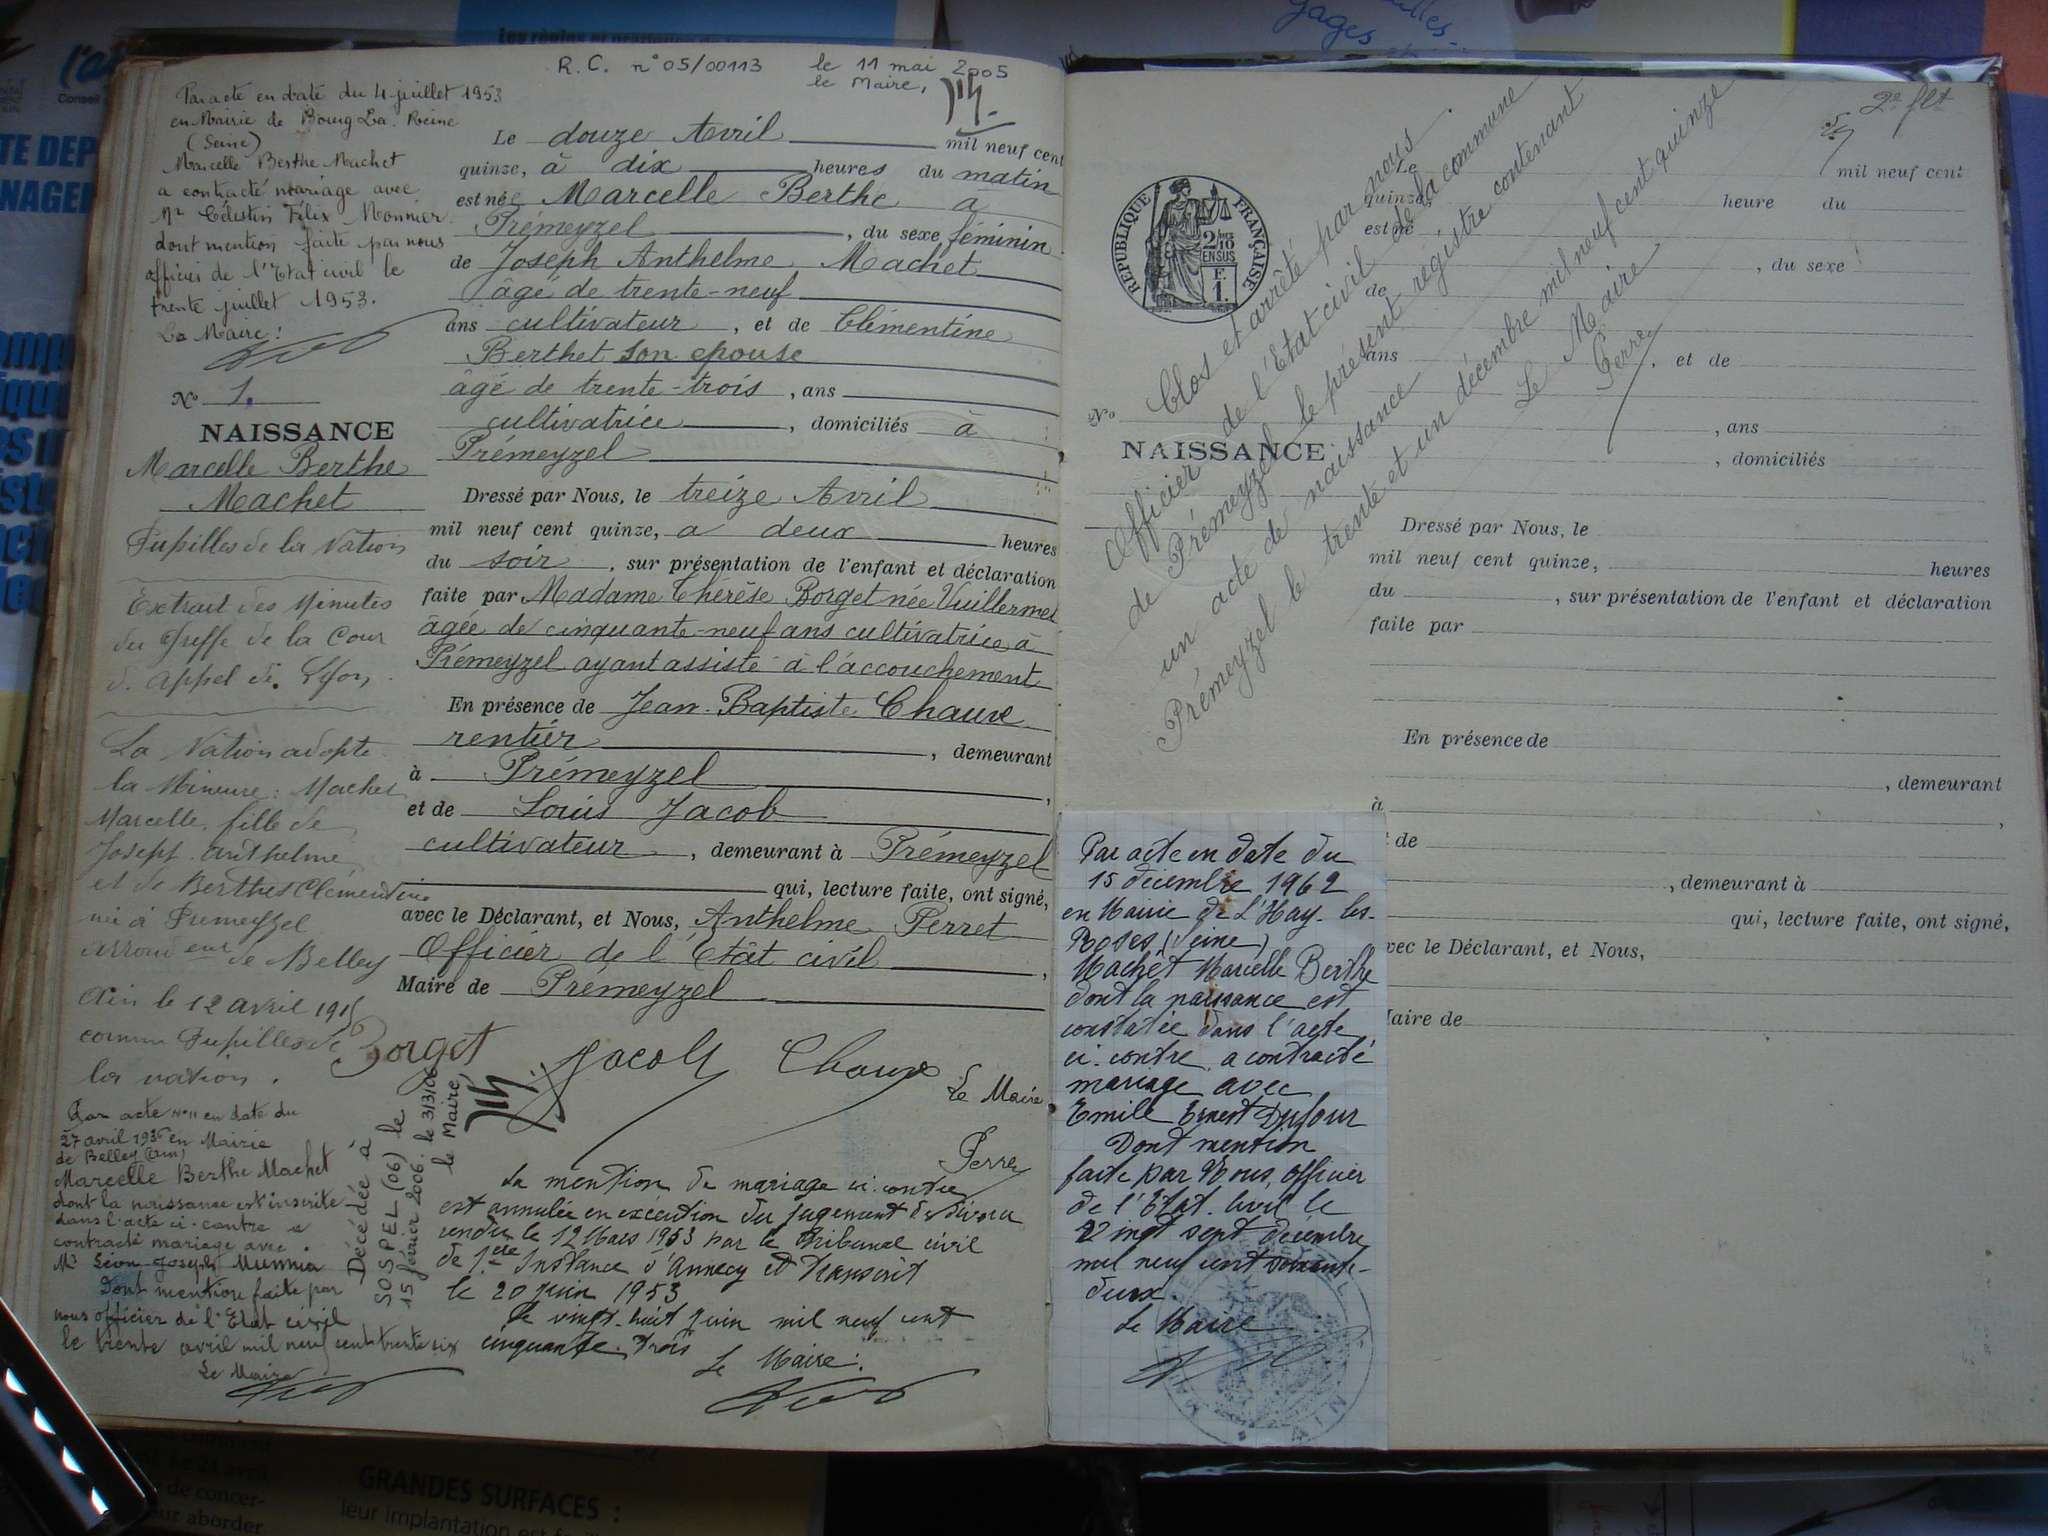 R.C. n° 05/00113 le 11 mai 2005
le Maire,
Par acte en date du 4 juillet 1953
en Mairie de Bourg La Reine
(Seine)
Marcelle Berthe Machet
a contracté mariage avec
Mr Célestin Félix Monnier
dont mention faite par nous
officier de l'Etat civil le
trente juillet 1953.
Le Maire :
N° 1.
NAISSANCE
Marcelle Berthe
Machet
Pupilles de la Nation
Extrait des Minutes
du Greffe de la Cour
d'Appel de Lyon
La Nation adopte
la Mineure : Machet
Marcelle, fille de
Joseph Anthelme
et de Berthet Clémentine
née à Prémeyzel
arrondem de Belley
Ain le 12 avril 1915
comme Pupilles de
la nation.
Par acte N°11 en date du
27 avril 1936 en Mairie
de Belley (Ain)
Marcelle Berthe Machet
dont la naissance est inscrite
dans l'acte ci-contre a
contracté mariage avec
Mr Léon Joseph
Dont mention faite par
nous officier de l'Etat civil
le trente avril mil neuf cent trente six
Le Maire
Le douze Avril mil neuf cent
quinze, à dix heures du matin
est née Marcelle Berthe à
Prémeyzel, du sexe féminin
de Joseph Anthelme Machet
âgé de trente-neuf
ans cultivateur, et de Clémentine
Berthet son epouse
âgé de trente-trois, ans
cultivatrice, domiciliés à
Prémeyzel
Dressé par Nous, le treize Avril
mil neuf cent quinze, a deux heures
du soir, sur présentation de l'enfant et déclaration
faite par Madame Thérèse Borget née Vuillermet
âgée de cinquante-neuf ans cultivatrice à
Prémeyzel ayant assisté à l'accouchement
En présence de Jean-Baptiste Chaux
rentier, demeurant
à Prémeyzel,
et de Louis Jacob
cultivateur, demeurant à Prémeyzel
qui, lecture faite, ont signé,
avec le Déclarant, et Nous, Anthelme Perret
Officier de l'Etât civil,
Maire de Prémeyzel
Borget Jacob Chaux
Le Maire
Perret
Décédée à
SOSPEL (06) le
15 février 2006. le 3/3/06
le Maire,
La mention de mariage ci-contre
est annulée en exécution du jugement de divorce
rendu le 12 Mars 1953 par le Tribunal civil
de 1ère Instance d'Annecy et Transcrit
le 20 juin 1953
Le vingt-huit juin mil neuf cent
cinquante trois
Le Maire :
2e flt
REPUBLIQUE FRANÇAISE
2/10
EN SUS
F.
1.
N°
NAISSANCE
mil neuf cent
quinze, heure du
est né
, du sexe
de
ans , et de
, ans
, domiciliés
Dressé par Nous, le
mil neuf cent quinze, heures
du , sur présentation de l'enfant et déclaration
faite par
En présence de
, demeurant
à ,
de
, demeurant à
qui, lecture faite, ont signé,
vec le Déclarant, et Nous,
Maire de
Clos et arrêté par nous
Officier de l'Etat civil de la commune
de Prémeyzel le présent registre contenant
un acte de naissance
Prémeyzel le trente et un décembre mil neuf cent quinze
Le Maire
Perret
Par acte en date du
15 décembre 1962
en Mairie de L'Hay-les-
Roses (Seine)
Machet Marcelle Berthe
dont la naissance est
constatée dans l'acte
ci-contre a contracté
mariage avec
Emile Ernest Dufour
Dont mention
faite par Nous, officier
de l'Etat-civil le
vingt sept décembre
mil neuf cent soixante-
deux.
Le Maire
GRANDES SURFACES :
de concer-
ur aborder